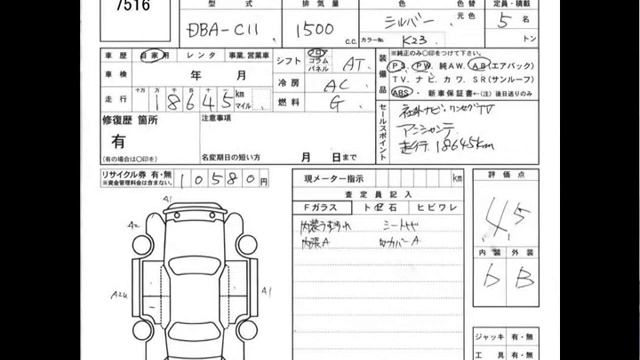 7516
型式 排気量 色 色替 定員・積載
DBA-C11 1500 c.c. シルバー 元色 5 名
カラーNo. K23 トン
車歴 自家用 レンタ 事業、営業車 シフト フロア コラム パネル AT
車検 年 月 冷房 AC
走行 十万 万 千 18645 km マイル 燃料 G
装備品 ※純正のみ○印をつけて下さい。
PS PW 純AW. AB(エアバック)
TV. ナビ. カワ. SR(サンルーフ)
ABS. 新車保証書…(注)後日送りのみ
修復歴 箇所 注意事項
有
(有の場合は○印を) 名変期日の短い方 月 日まで
セールスポイント 社外ナビ・ワンセグTV
走行 18645km
リサイクル券 有・無 10580円
※資金管理料金は含まない。
現メーター指示 km
査定員記入
Fガラス トビ石 ヒビワレ
内張A
評価点
4.5
内装 外装
b B
A1
A2
A1
ジャッキ 有・無
工具 有・無